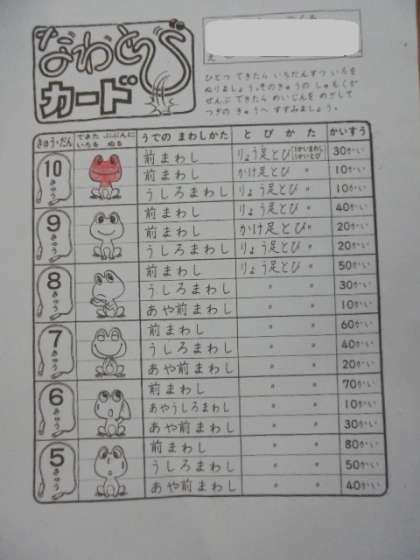 なわとび
カード
ひとつ できたら いちだんずつ いろを
ぬりましょう。そのきゅうの しゅもくが
ぜんぶ できたら めいじんを めざして
つぎの きゅうへ すすみましょう。
きゅう・だん できた ぶぶんに いろを ぬる うでの まわしかた とびかた かいすう
10 きゅう
前まわし りょう足とび 30かい
前まわし かけ足とび 〃 10かい
うしろまわし りょう足とび 〃 10かい
9 きゅう
前まわし りょう足とび 〃 40かい
前まわし かけ足とび〃 20かい
うしろまわし りょう足とび 〃 20かい
8 きゅう
前まわし りょう足とび 〃 50かい
うしろまわし 〃 〃 30かい
あや前まわし 〃 〃 10かい
7 きゅう
前まわし 〃 〃 60かい
うしろまわし 〃 〃 40かい
あや前まわし 〃 〃 20かい
6 きゅう
前まわし 〃 〃 70かい
あやうしろまわし 〃 〃 10かい
あや前まわし 〃 〃 30かい
5 きゅう
前まわし 〃 〃 80かい
うしろまわし 〃 〃 50かい
あや前まわし 〃 〃 40かい